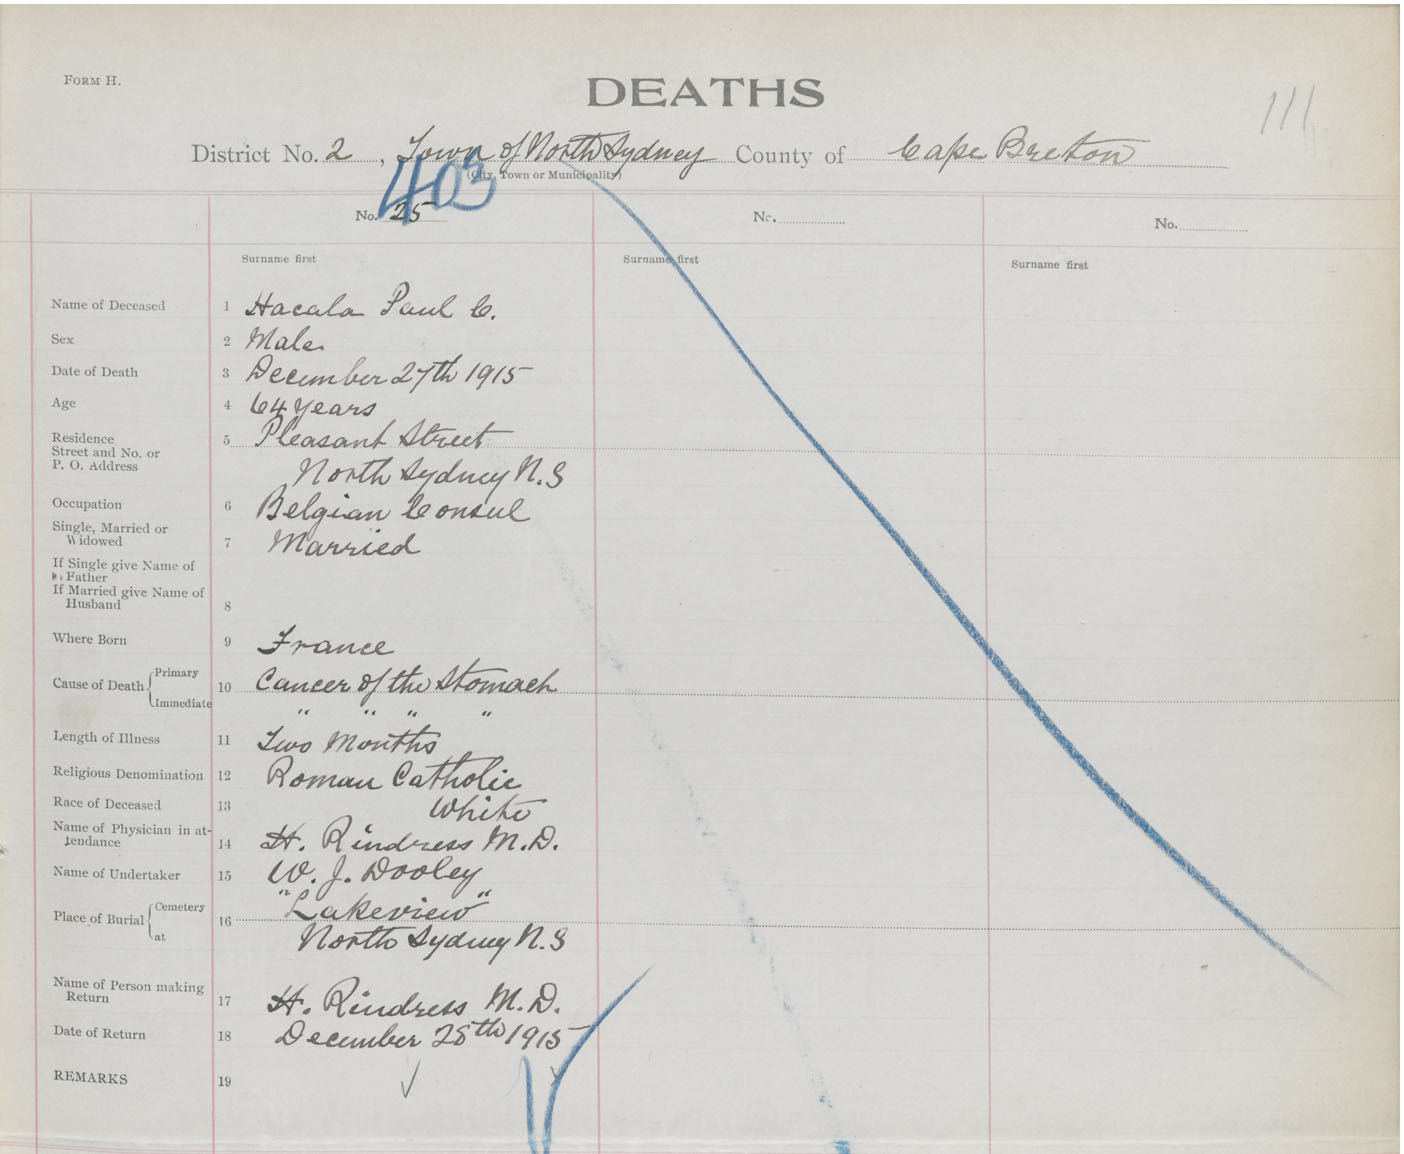 FORM H.
DEATHS
111
District No. 2, Town of North Sydney County of Cape Breton
(City, Town or Municipality)
403
No. 25 No. No.
Surname first Surname first Surname first
Name of Deceased 1 Hacala Paul C.
Sex 2 Male
Date of Death 3 December 27th 1915
Age 4 64 years
Residence 5 Pleasant Street
Street and No. or
P. O. Address North Sydney N.S
Occupation 6 Belgian Consul
Single, Married or
Widowed 7 Married
If Single give Name of
Father
If Married give Name of
Husband 8
Where Born 9 France
Primary
Cause of Death 10 Cancer of the Stomach
Immediate " " " "
Length of Illness 11 Two Months
Religious Denomination 12 Roman Catholic
Race of Deceased 13 White
Name of Physician in at-
tendance 14 H. Rindress M.D.
Name of Undertaker 15 W. J. Dooley
Cemetery "Lakeview"
Place of Burial 16
at North Sydney N.S
Name of Person making
Return 17 H. Rindress M.D.
Date of Return 18 December 28th 1915
REMARKS 19